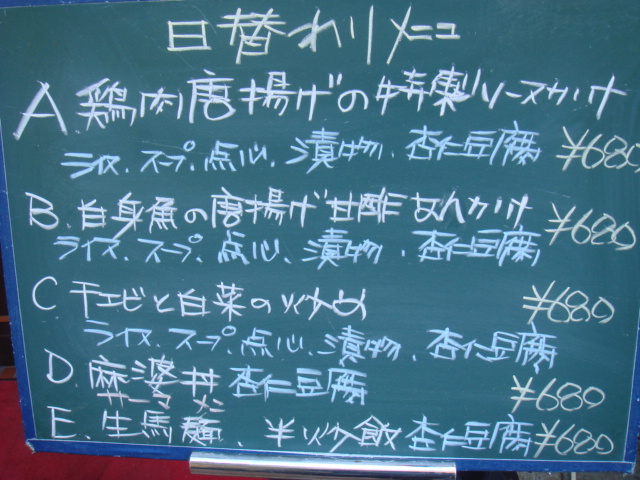 日替わりメニュ
A.鶏肉唐揚げの特製ソースかけ
ライス.スープ.点心.漬物.杏仁豆腐 ¥680
B.白身魚の唐揚げ甘酢あんかけ ¥680
ライス.スープ.点心.漬物.杏仁豆腐
C.干エビと白菜の炒め ¥680
ライス.スープ.点心.漬物.杏仁豆腐
D.麻婆丼 杏仁豆腐 ¥680
サーマーメン
E.生馬麺.半炒飯 杏仁豆腐 ¥680